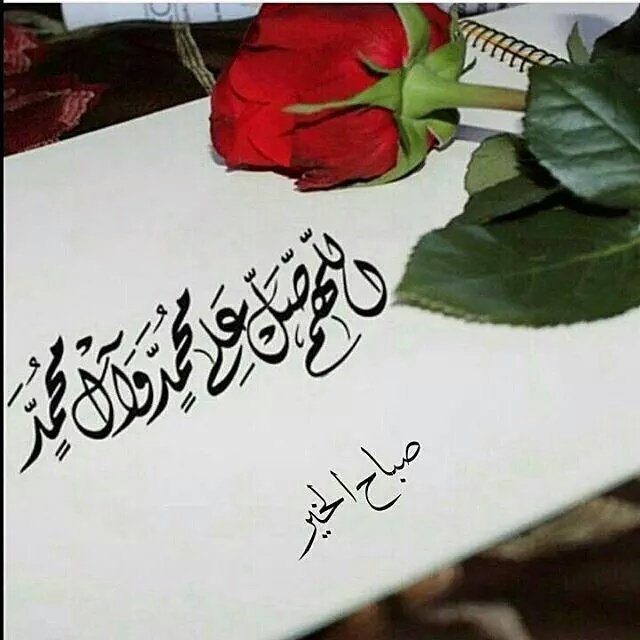 اللّهُمَّ صَّلِ عَلى مُحمُدٍّ وَآلْ مُحمُدٍّ
صباح الخير